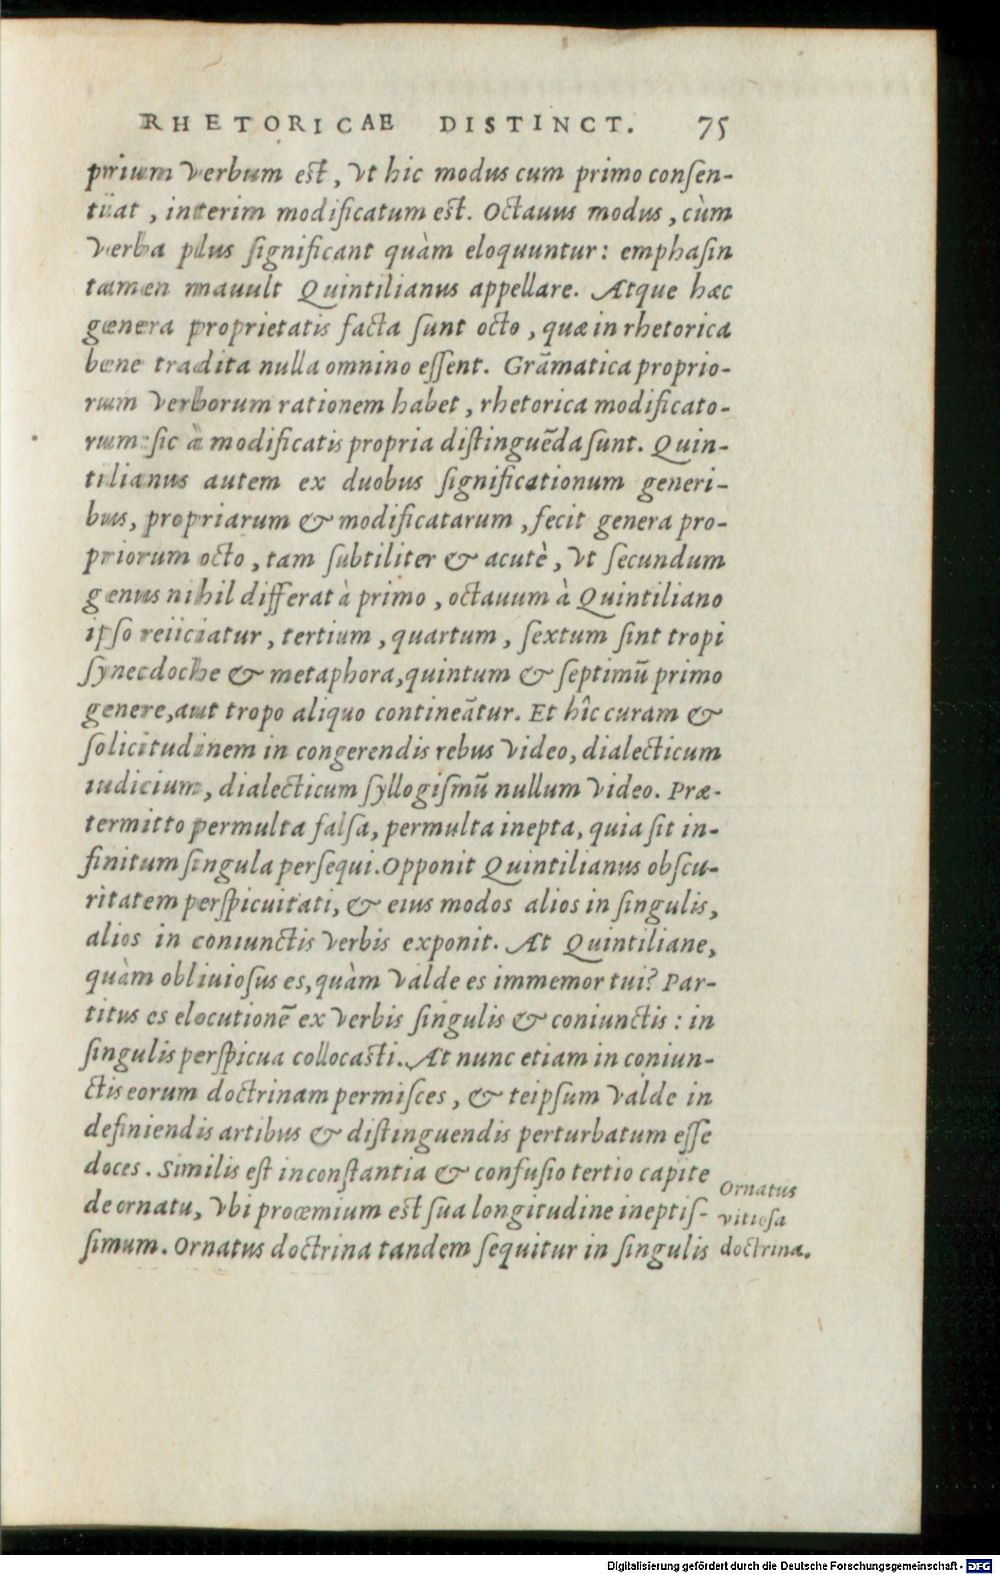 RHETORICAE DISTINCT. 75
prium verbum est, vt hic modus cum primo consen-
tiat, interim modificatum est. Octauus modus, cùm
verba plus significant quàm eloquuntur: emphasin
tamen mauult Quintilianus appellare. Atque hæc
genera proprietatis facta sunt octo, quæ in rhetorica
bene tradita nulla omnino essent. Grãmatica proprio-
rum verborum rationem habet, rhetorica modificato-
rum: sic à modificatis propria distinguẽda sunt. Quin-
tilianus autem ex duobus significationum generi-
bus, propriarum & modificatarum, fecit genera pro-
priorum octo, tam subtiliter & acutè, vt secundum
genus nihil differat à primo, octauum à Quintiliano
ipso reiiciatur, tertium, quartum, sextum sint tropi
synecdoche & metaphora, quintum & septimũ primo
genere, aut tropo aliquo contineãtur. Et hîc curam &
solicitudinem in congerendis rebus video, dialecticum
iudicium, dialecticum syllogismũ nullum video. Præ-
termitto permulta falsa, permulta inepta, quia sit in-
finitum singula persequi. Opponit Quintilianus obscu-
ritatem perspicuitati, & eius modos alios in singulis,
alios in coniunctis verbis exponit. At Quintiliane,
quàm obliuiosus es, quàm valde es immemor tui? Par-
titus es elocutionẽ ex verbis singulis & coniunctis: in
singulis perspicua collocasti. At nunc etiam in coniun-
ctis eorum doctrinam permisces, & teipsum valde in
definiendis artibus & distinguendis perturbatum esse
doces. Similis est inconstantia & confusio tertio capite
de ornatu, vbi proœmium est sua longitudine ineptis-
simum. Ornatus doctrina tandem sequitur in singulis
Ornatus
vitiosa
doctrina.
Digitalisierung gefördert durch die Deutsche Forschungsgemeinschaft - DFG